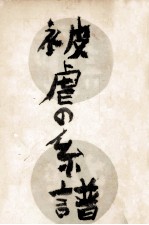 被虐の系譜